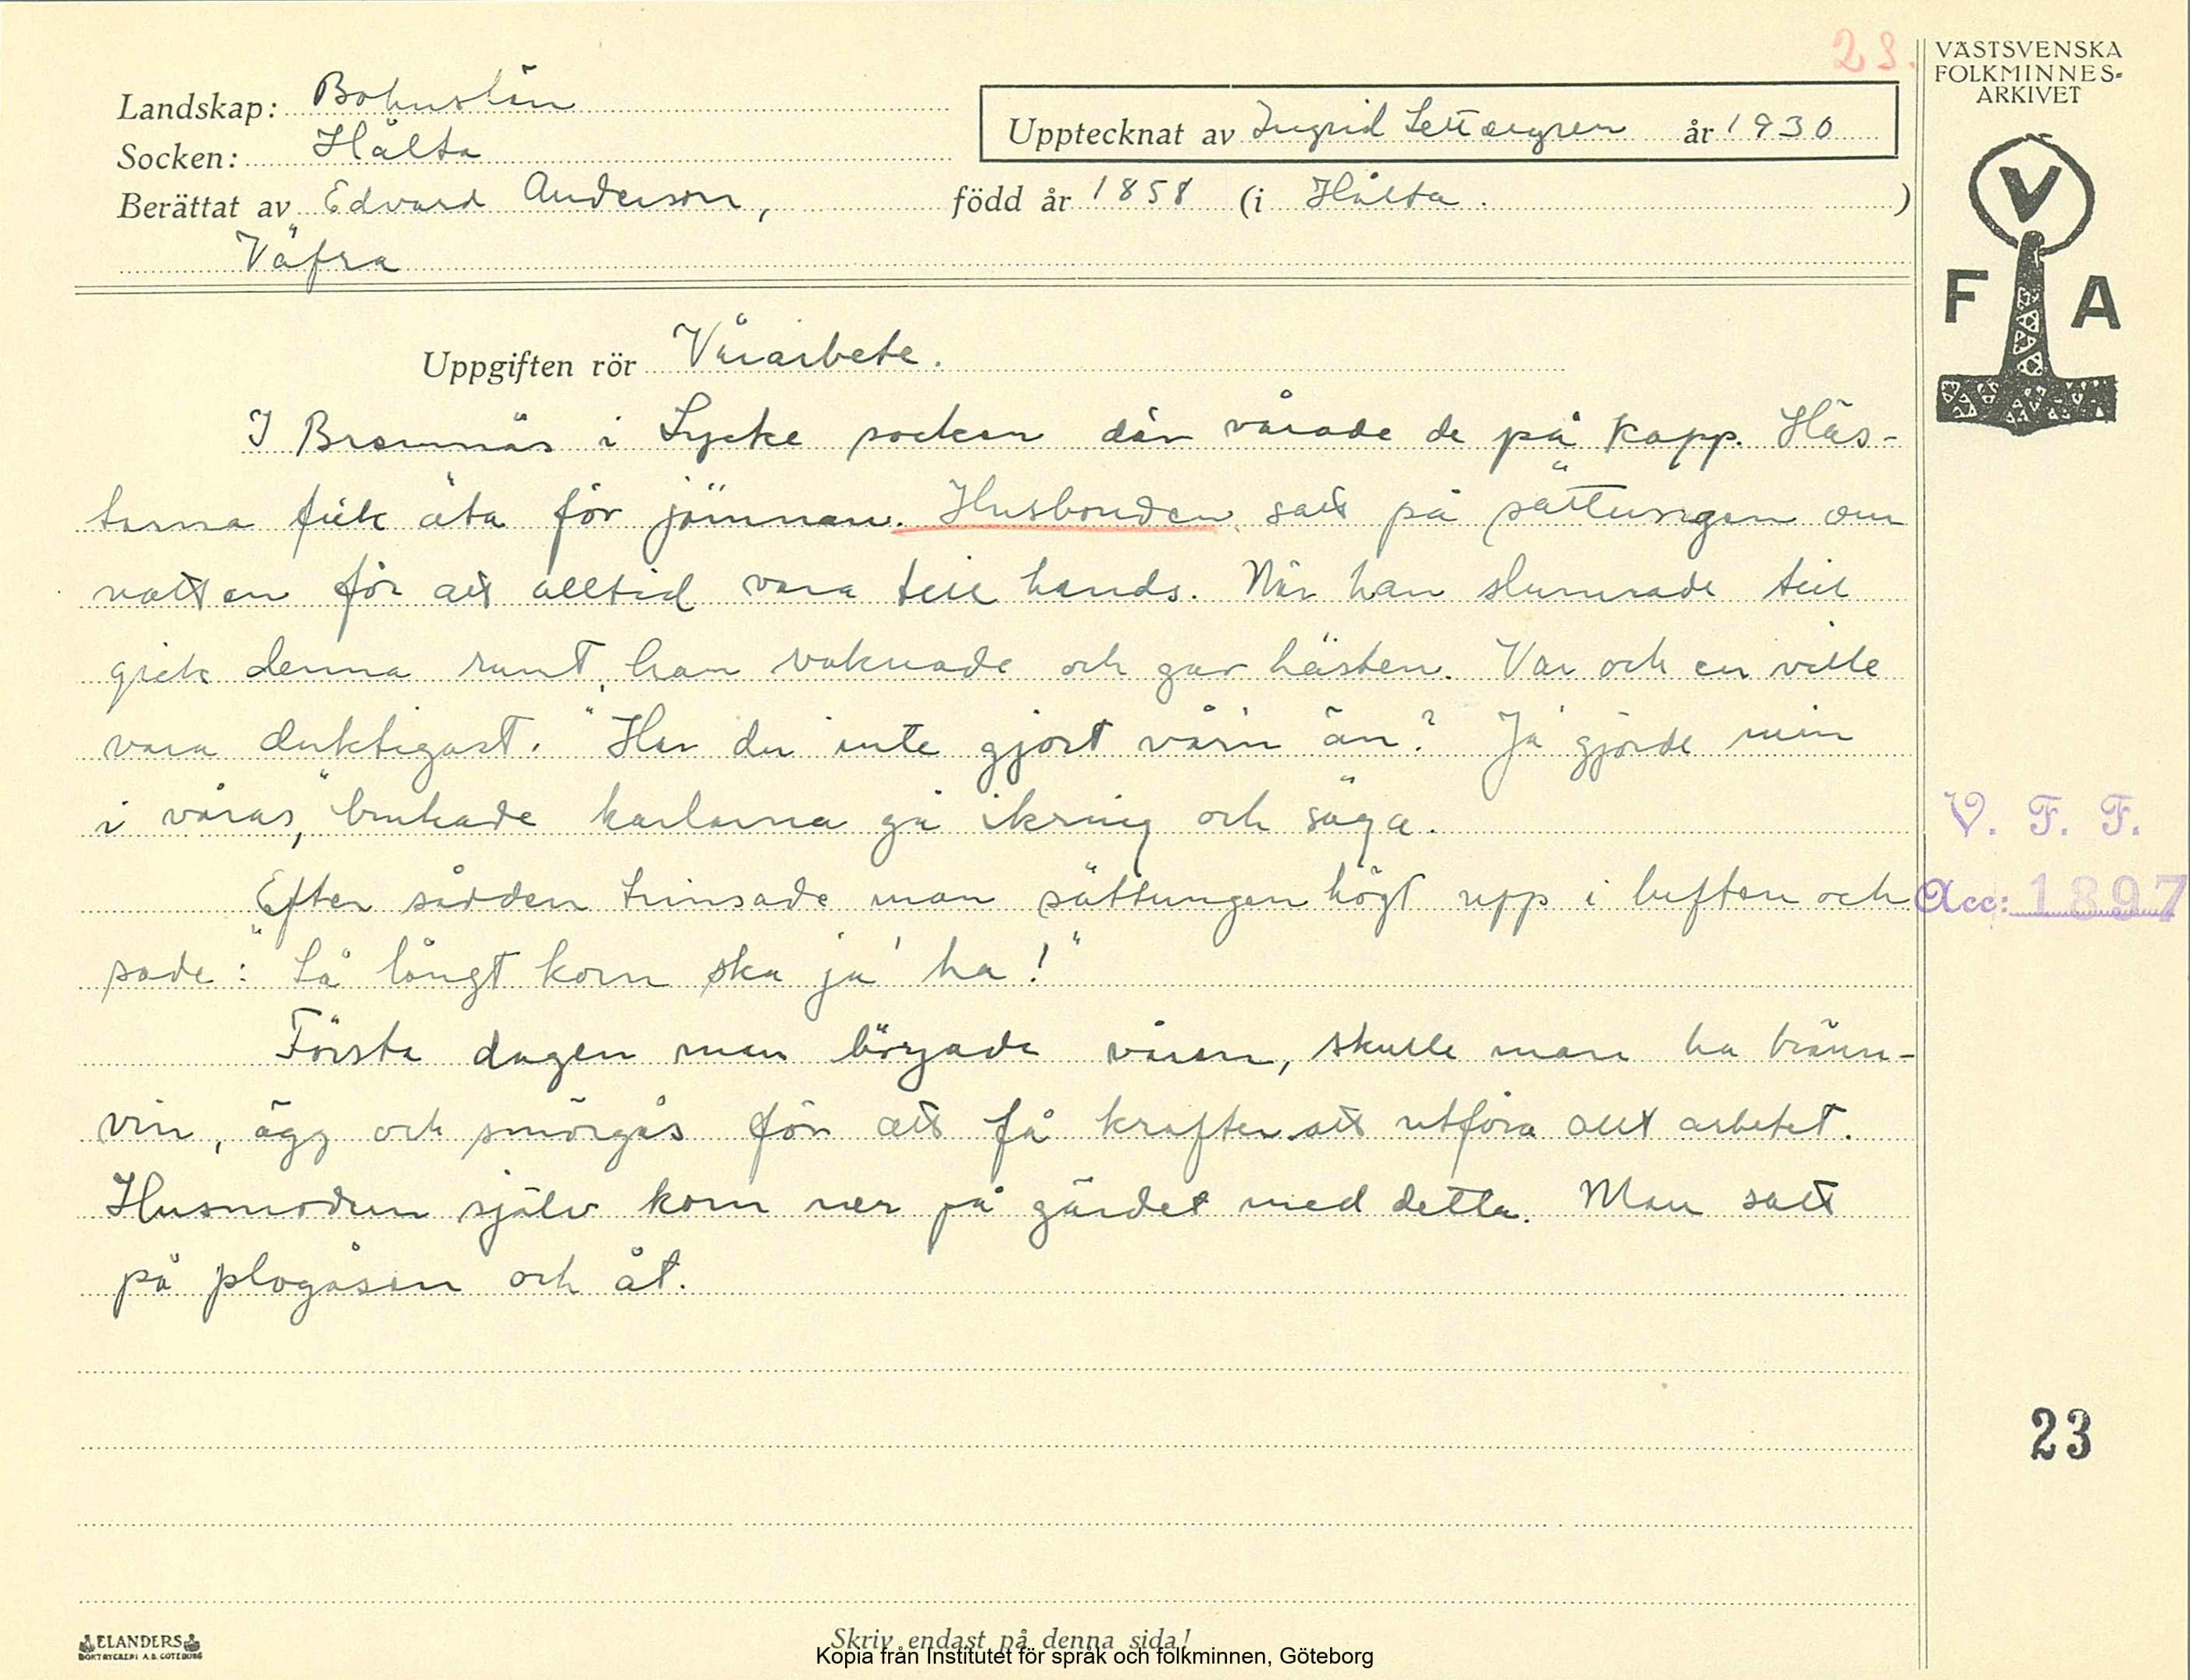 23.
VÄSTSVENSKA
FOLKMINNES-
ARKIVET
Landskap: Bohuslän
Upptecknat av Ingrid Settergren år 1930
Socken: Hålta
Berättat av Edvard Anderson, född år 1858 (i Hålta.)
Väfra
V
F A
Uppgiften rör Vårarbete.
I Bremnäs i Lycke socken där vårade de på kapp. Häs-
tarna fick äta för jämnan. Husbonden satt på sättungen om
natten för att alltid vara till hands. När han slumrade till
gick denna runt, han vaknade och gav hästen. Var och en ville
vara duktigast. "Har du inte gjort vårn än? Ja' gjorde min
i våras," brukade karlarna gå ikring och säga.
Efter sådden hinsade man sättungen högt upp i luften och
sade: "Så långt korn ska ja' ha!"
Första dagen man började våren, skulle man ha bränn-
vin, ägg och smörgås för att få krafter att utföra allt arbetet.
Husmodern själv kom ner på gärdet med detta. Man satt
på plogåsen och åt.
V. F. F.
Acc: 1897
23
ELANDERS
BOKTRYCKERI A.B. GÖTEBORG
Skriv endast på denna sida!
Kopia från Institutet för språk och folkminnen, Göteborg